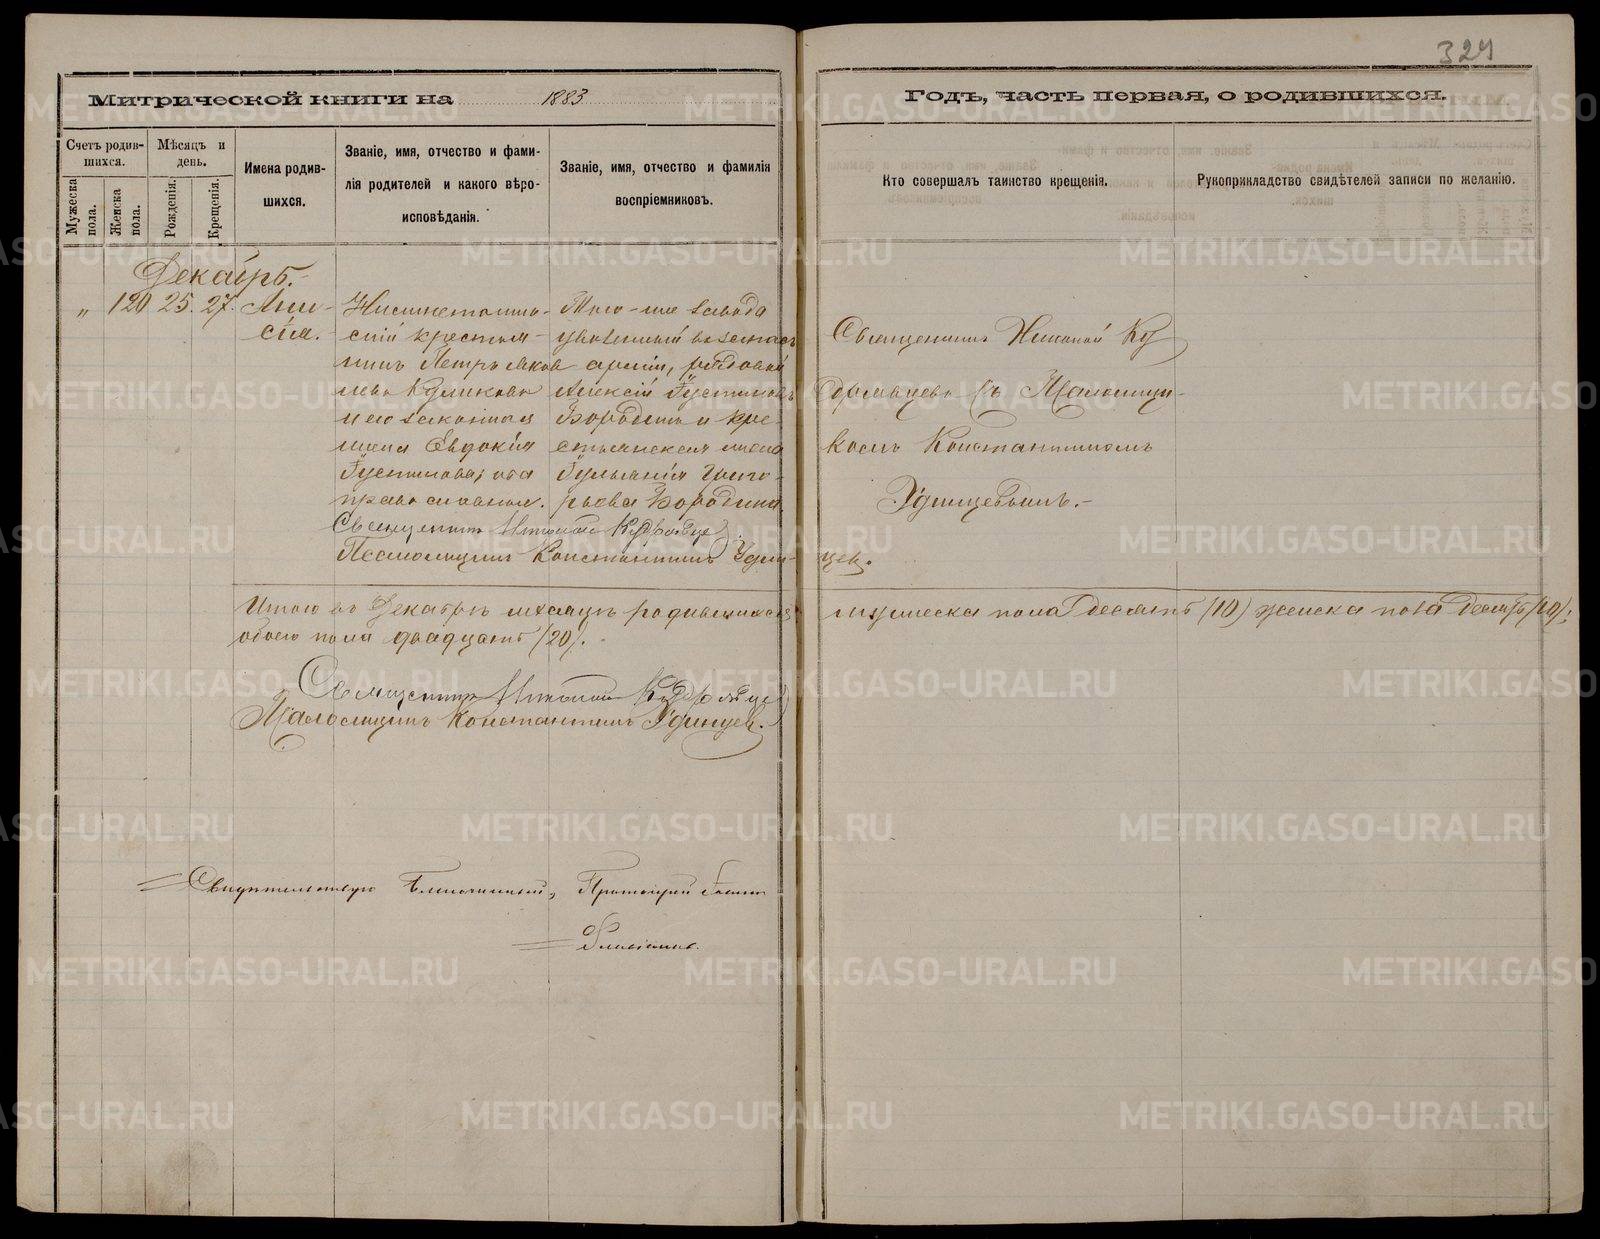 324
Митрической книги на 1883
Годъ, часть первая, о родившихся.
Счетъ родив-
шихся.
Мужеска
пола.
Женска
пола.
Мѣсяцъ и
день.
Рожденія.
Крещенія.
Имена родив-
шихся.
Званіе, имя, отчество и фами-
лія родителей и какого вѣро-
исповѣданія.
Званіе, имя, отчество и фамилія
воспріемниковъ.
Кто совершалъ таинство крещенія.
Рукоприкладство свидѣтелей записи по желанію.
Декабрь.
„ 120 25. 27. Ани-
сія.
крестья-
нинъ Петръ Яков
лева Куликова
и его законная
жена Евдокія
Іустинова; оба
православные.
Того-же завода
уволенный въ запасъ
арміи, рядовой
Алексій Іустиновъ
Бородинъ и кре-
стьянская жена
Іуліанія Григо-
рьева Бородина.
Священникъ Николай Ку
дрявцевъ съ Псаломщи-
комъ Константиномъ
Удинцевымъ.-
Священникъ Николай Кудрявцевъ
Псаломщикъ Константинъ Удин-
цев.
Итого въ Декабрѣ мѣсяцѣ родившихся мужеска пола десять (10) женска пола десять (10);
обоего пола двадцать (20).
Священникъ Николай Кудрявцевъ
Псаломщикъ Константинъ Удинцев.
Свидѣтельствую Благочинный, Протоіерей
METRIKI.GASO-URAL.RU